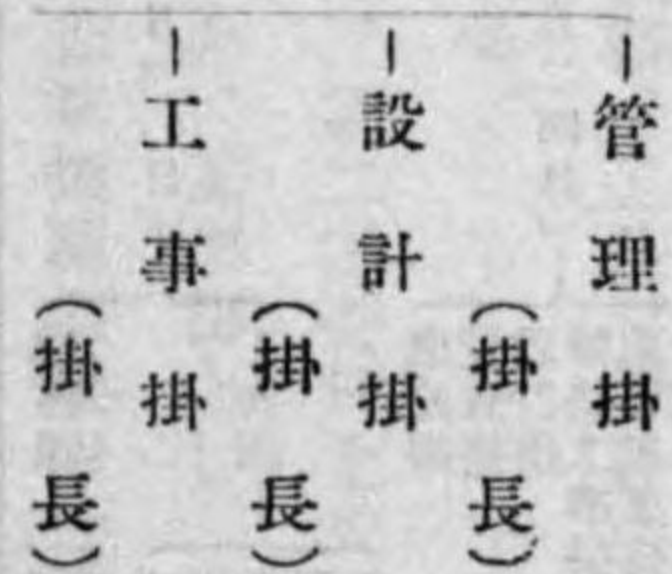 管理掛
(掛長)
設計掛
(掛長)
工事掛
(掛長)